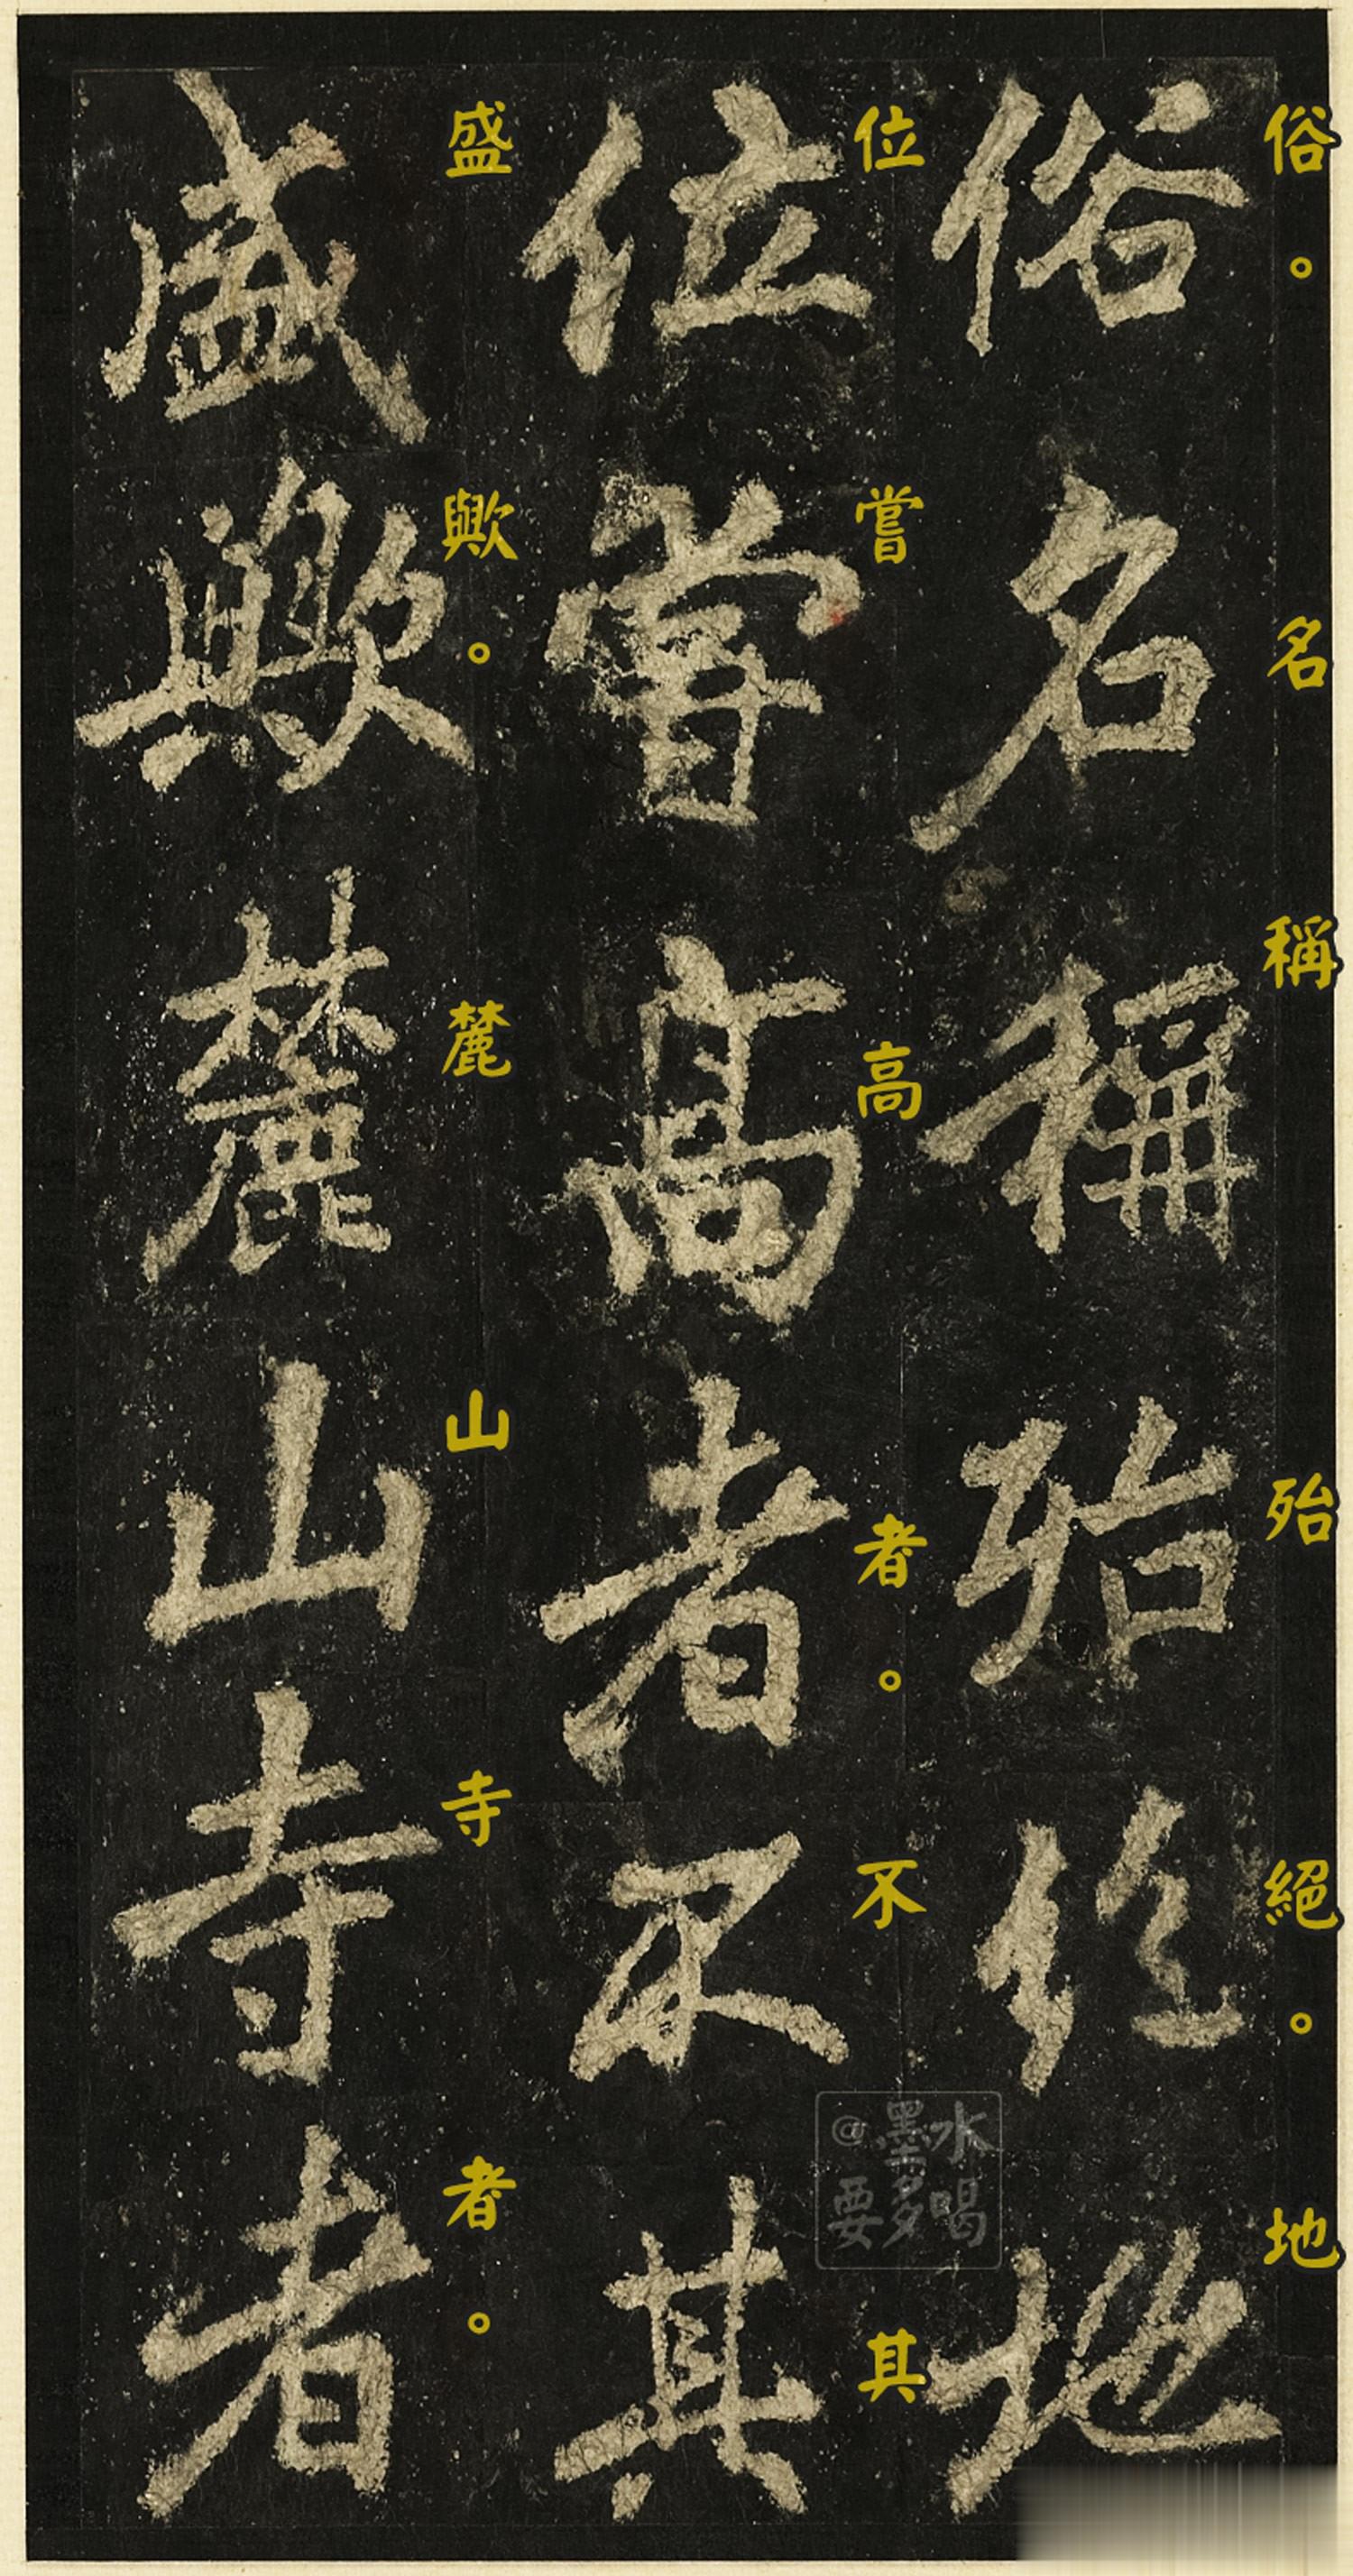 俗。名稱殆絕。地
位嘗高者。不其
盛歟。麓山寺者。
俗名稱殆絕地
位嘗高者不其
盛歟麓山寺者
@墨水
要多喝